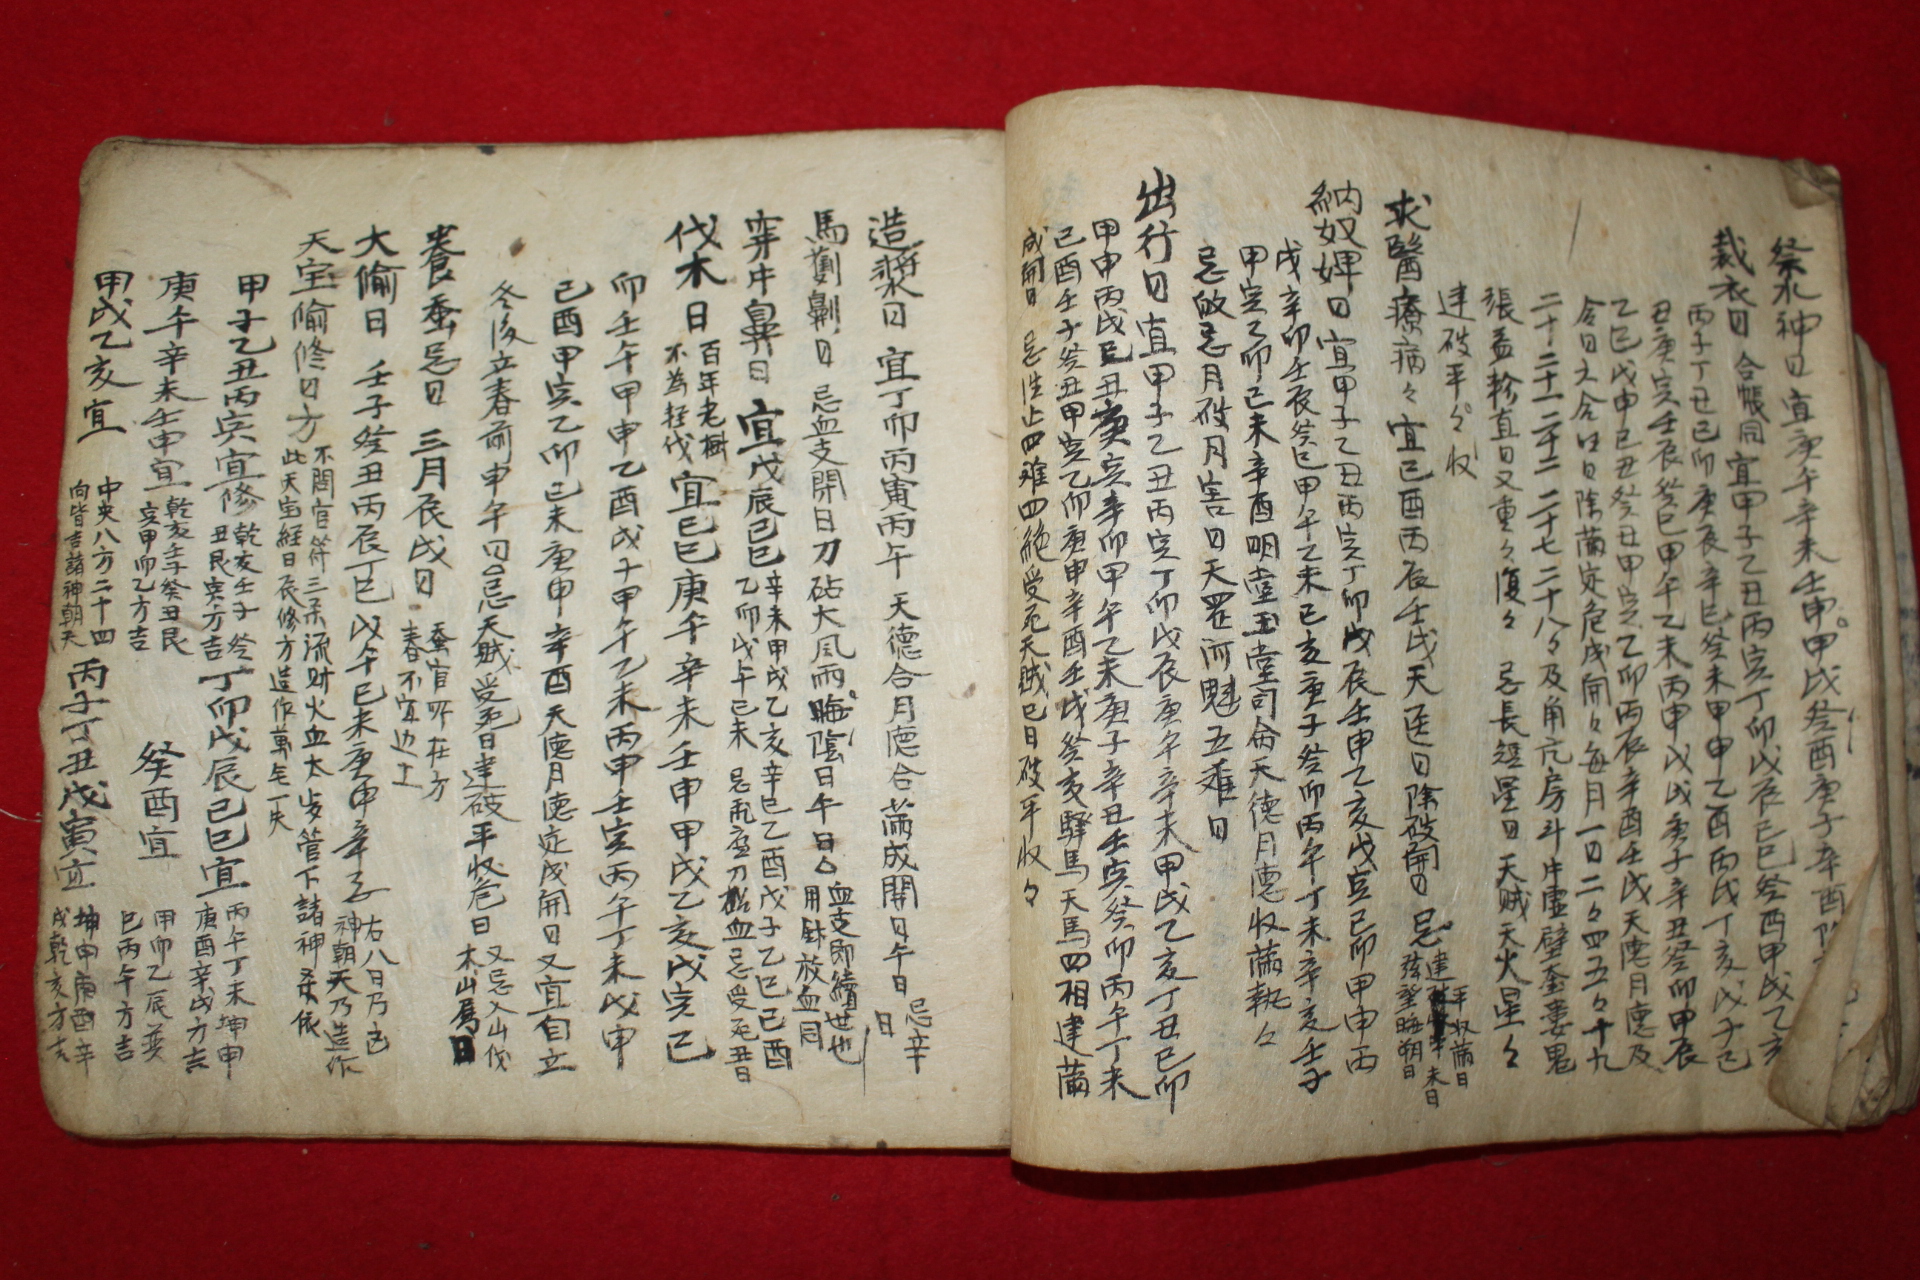 祭神日宜庚午辛未壬申甲戌癸酉庚子辛酉
裁衣日合帳同宜甲子乙丑丙寅丁卯戊辰己巳癸酉甲戌乙亥
丙子丁丑己卯庚辰辛巳癸未甲申乙酉丙戌丁亥戊子己
丑庚寅壬辰癸巳甲午乙未丙申戊戌庚子辛丑癸卯甲辰
乙巳戊申己丑癸丑甲寅乙卯丙辰辛酉壬戌天德月德及
令日大合日日除滿定危成開々每月一日二々四五々十九
二十二十一二十二二十七二十八々及角亢房斗牛虛壁奎婁鬼
張益軫直日又重々復々忌長短星日天賊天火星々
建破平々收
求醫療病々宜己酉丙辰壬戌天医日除破開日忌
建破平收滿日
弦望晦朔日未日
納奴婢日宜甲子乙丑丙寅丁卯戊辰壬申乙亥戊寅己卯甲申丙
戌辛卯壬辰癸巳甲午乙未己亥庚子癸卯丙午丁未辛亥壬子
甲寅乙卯己未辛酉明堂玉堂司命天德月德收滿執々
忌啟忌月破月害日天罡河魁五難日
出行日宜甲子乙丑丙寅丁卯戊辰庚午辛未甲戌乙亥丁丑己卯
甲申丙戌己丑庚寅辛卯甲午乙未庚子辛丑壬寅癸卯丙午丁未
己酉壬子癸丑甲寅乙卯庚申辛酉壬戌癸亥驛馬天馬四相建滿
成開日忌徃亡四难四絕受死天賊巳日破平收々
造漿日宜丁卯丙寅丙午天德合月德合滿成開日午日忌辛
日
馬劃鼻日忌血支開日刀砧大風雨晦陰日午日
血支即續世也
用針放血同
穿牛鼻日宜戊辰己巳
辛未甲戌乙亥辛巳乙酉戊子乙巳己酉
乙卯戊午己未忌刀砧血忌受死丑日
伐木日
百年老樹
不為輕伐
宜己巳庚午辛未壬申甲戌乙亥戊寅己
卯壬午甲申乙酉戊子甲午乙未丙申壬寅丙午丁未戊申
己酉甲寅乙卯己未庚申辛酉天德月德定成開日又宜自立
冬後立春前申午日忌天賊受死日建破平收危日
又忌入山伐
木山鳥日
養蚕忌日三月辰戌日
蚕官所在方
春不宜边土
大偷日壬子癸丑丙辰丁巳戊午己未庚申辛子
右八日乃凶
神朝天乃造作
天宝偷修日方
不問官符三杀流財火血太歲管下諸神杀依
此天宝経日辰修方造作萬无一失
甲子乙丑丙寅宜修
乾亥壬子癸
丑艮寅方吉
丁卯戊辰己巳宜
丙午丁未坤申
庚酉辛戌方吉
庚午辛未壬申宜
乾亥壬子癸丑艮
寅甲卯乙方吉
癸酉宜
甲卯乙辰巽
巳丙午方吉
甲戌乙亥宜
中央八方二十四
向皆吉諸神朝天
丙子丁丑戊寅宜
坤申庚酉辛
戌乾亥方吉